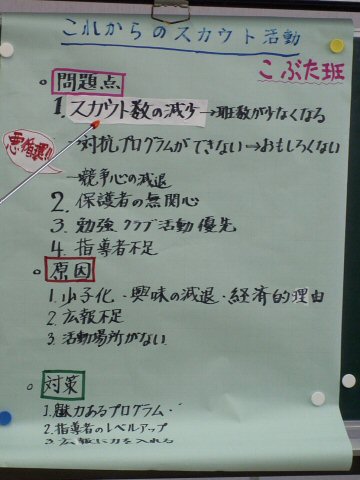 これからのスカウト活動
こぶた班
問題点
1. スカウト数の減少→班数が少なくなる
悪循環!!
対抗プログラムができない→おもしろくない
競争心の減退
2. 保護者の無関心
3. 勉強クラブ活動優先
4. 指導者不足
原因
1. 少子化・興味の減退・経済的理由
2. 広報不足
3. 活動場所がない
対策
1. 魅力あるプログラム・
2. 指導者のレベルアップ
3. 広報に力を入れる